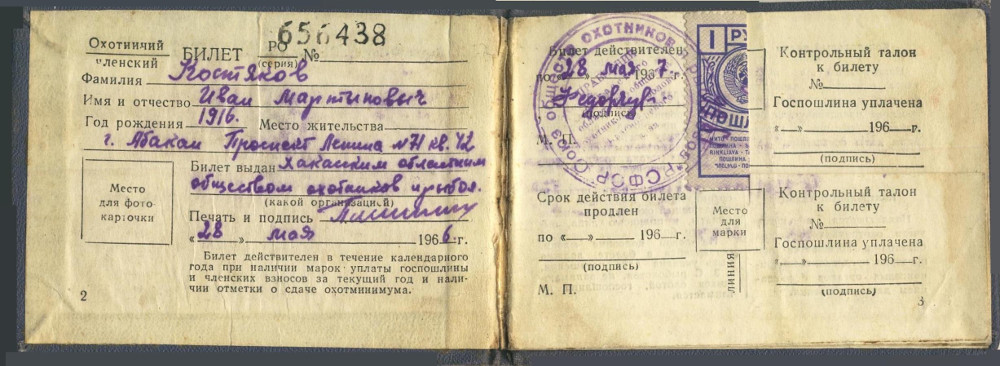 Охотничий
членский БИЛЕТ РО № 656438
(серия)
Фамилия Костяков
Имя и отчество Иван Мартинович
Год рождения 1916. Место жительства
г. Абакан Проспект Ленина №71 кв. 42
Билет выдан Хакасским областным
обществом охотников и рыбол.
(какой организацией)
Место
для фото-
карточки
Печать и подпись
«28» мая 1966 г.
Билет действителен в течение календарного
года при наличии марок уплаты госпошлины
и членских взносов за текущий год и нали-
чии отметки о сдаче охотминимума.
2
Билет действителен
по «28» мая 1967 г.
(подпись)
М. П.
ОХОТНИКОВ
РСФСР СОЮЗ ОБЩЕСТВ
1 РУ
Срок действия билета
продлен
по «—» 196—г.
(подпись)
М. П.
Место
для
марки
ЛИНИЯ
Контрольный талон
к билету
№
Госпошлина уплачена
«—» 196—г.
(подпись)
Контрольный талон
к билету
№
Госпошлина уплачена
«—» 196—г.
(подпись)
3